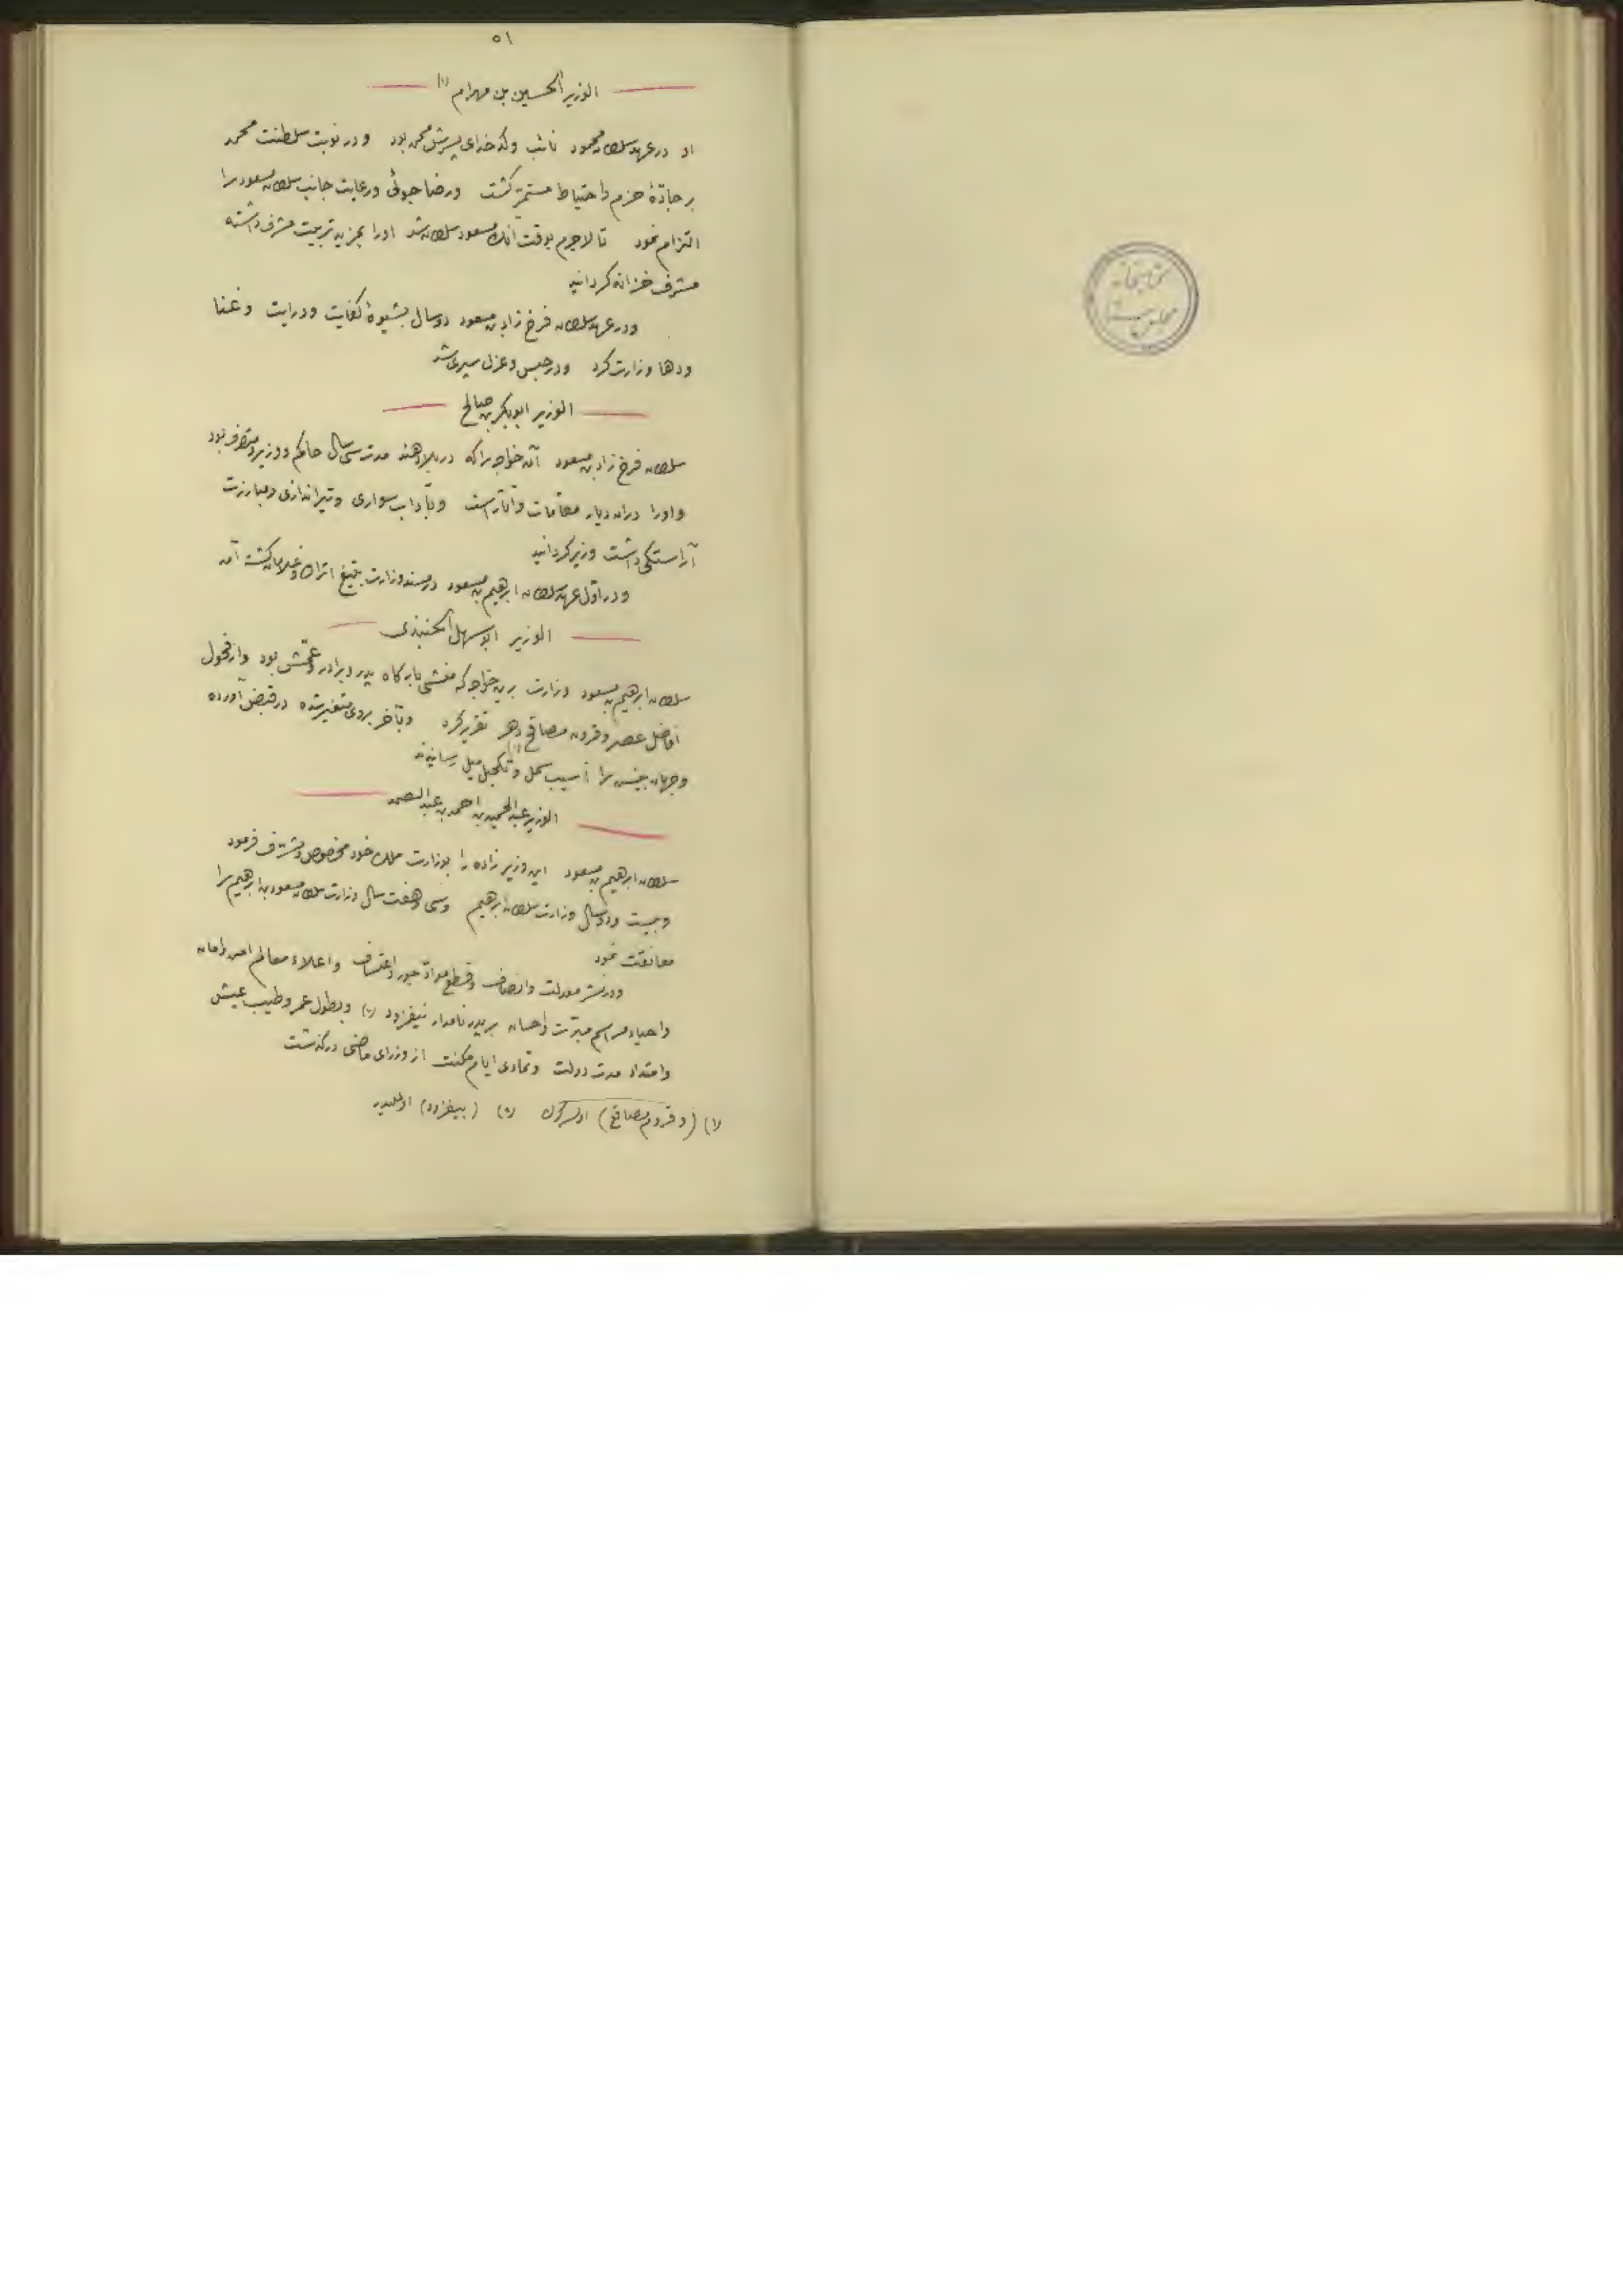 ۵۱
الوزیر الحسین بن مهرام (۱)
او در عهد سلطان محمود نائب وکدخدای پسرش محمد بود ودر نوبت سلطنت محمد
بر جادّهٔ حزم واحتیاط مستمرّ کشت ورضا جوئی ورعایت جانب سلطان مسعود را
التزام نمود تا لاجرم بوقت آنک مسعود سلطان شد اورا بمزید تربیت مشرف داشته
مشرف خزانه کردانید
ودر عهد سلطان فرخ زاد بن مسعود دو سال بشیوهٔ کفایت ودرایت وغنا
ودها وزارت کرد ودر حبس وعزل سپری شد
الوزیر ابوبکر بن صالح
سلطان فرخ زاد بن مسعود آن خواجه را که در بلاد هند مدت سی سال حاکم ووزیر ومتصرف بود
واورا دران دیار مقامات وآثارست وبآداب سواری وتیراندازی ومبارزت
آراستکی داشت وزیر کردانید
ودر اوّل عهد سلطان ابرهیم بن مسعود در مسند وزارت بتیغ اتراک وغلامان کشته آمد
الوزیر ابو سهل الخجندی
سلطان ابرهیم بن مسعود وزارت برین خواجه که منشی بارکاه پدر وبرادر وعمّش بود واز فحول
افاضل عصر وقروم مصاقع دهر تقریر کرد وبآخر بروی متغیر شده در قبض آورده
وجهان بینش را آسیب سمل وتکحیل میل رسانیدند
الوزیر عبد الحمید بن احمد بن عبد الصمد
سلطان ابرهیم بن مسعود این وزیر زاده را بوزارت ملک خود مخصوص ومشرّف فرمود
وبیست ودو سال وزارت سلطان ابرهیم وسی وهفت سال وزارت سلطان مسعود بن ابرهیم را
معانقت نمود
ودر نشر معدلت وانصاف وقطع موادّ جور واعتساف واعلاء معالم امن وامان
واحیاء مراسم مبرّت واحسان بر پدر نامدار نیفزود (۲) وبطول عمر وطیب عیش
وامتداد مدت دولت وتمادی ایام مکنت از وزرای ماضی درکذشت
(۱) (وقروم مصاقع) اولسه کرک (۲) (بیفزود) اولملیدر
کتابخانه
مجلس سنا